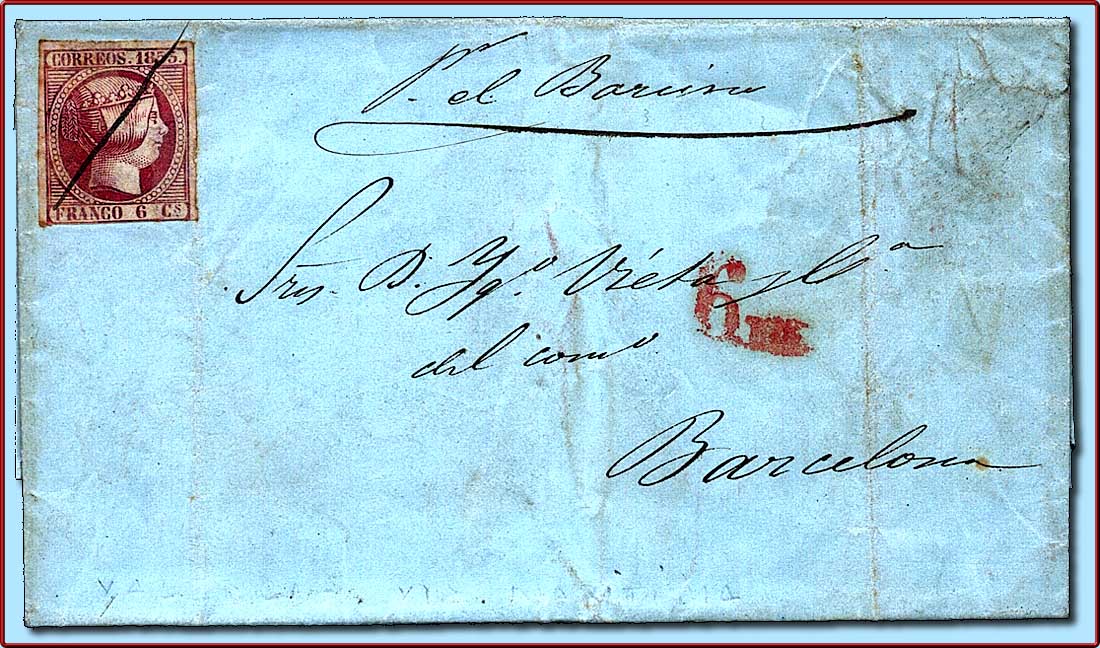 CORREOS. 1853.
FRANCO 6 Cs
Pr. el Barcino
Sres. D. Ygo. Vieta y Ca
del como
Barcelona
6 Rs